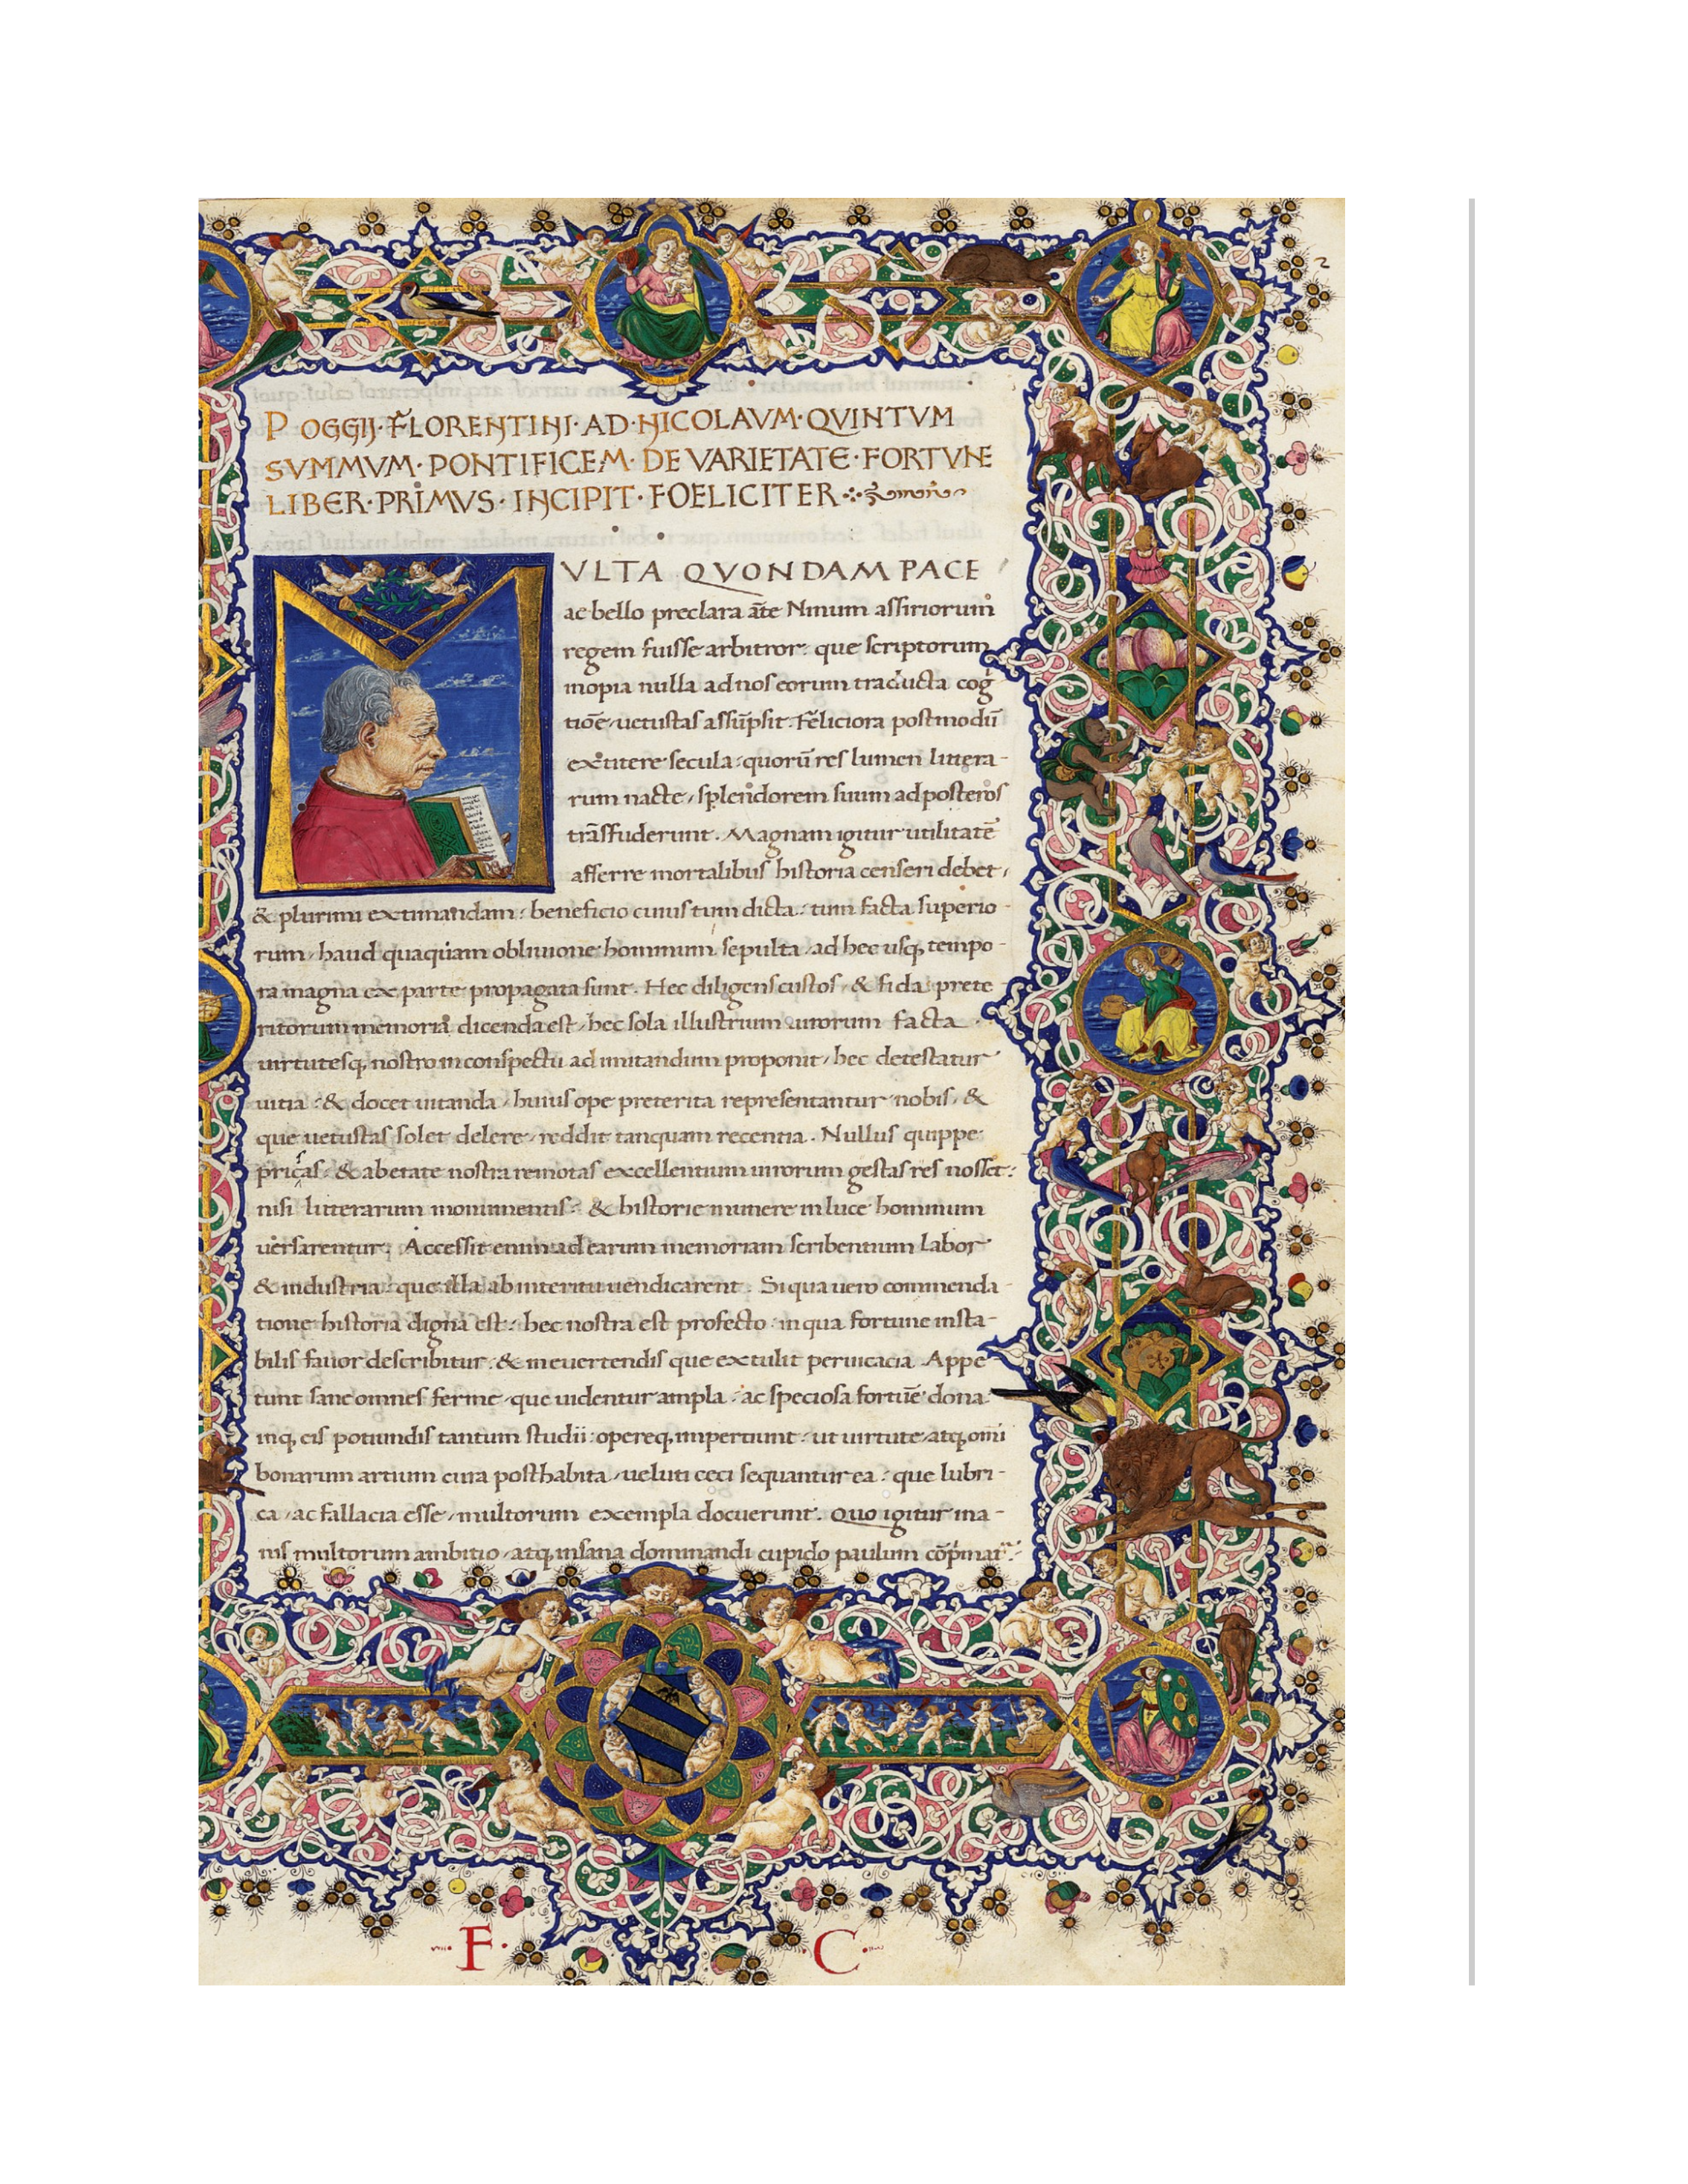 POGGIJ·FLORENTINI·AD·NICOLAVM·QVINTVM
SVMMVM·PONTIFICEM·DE VARIETATE·FORTVNE
LIBER·PRIMVS·INCIPIT·FOELICITER
MVLTA QVONDAM PACE
ac bello preclara ãte Ninum assiriorum
regem fuisse arbitror: que scriptorum
inopia nulla ad nos eorum traducta cog
tiõe, uetustas assũpsit. Feliciora postmodũ
extitere secula: quorũ res lumen littera-
rum nacte, splendorem suum ad posteros
trãsfuderunt. Magnam igitur utilitatẽ
afferre mortalibus historia censeri debet,
& plurimi extimandam: beneficio cuius tum dicta: tum facta superio-
rum, haud quaquam obliuione hominum sepulta, ad hec usq; tempo-
ra magna ex parte propagata sunt. Hec diligens custos, & fida prete
ritorum memoria dicenda est, hec sola illustrium uirorum facta
uirtutesq; nostro in conspectu ad imitandum proponit, hec detestatur
uitia: & docet uitanda, huius ope preterita representantur nobis, &
que uetustas solet delere, reddit tanquam recentia. Nullus quippe
priscas, & ab etate nostra remotas excellentium uirorum gestas res nosset:
nisi litterarum monumentis, & historie munere in luce hominum
uersarentur. Accessit enim ad earum memoriam scribentium labor
& industria: que illa ab interitu uendicarent. Si qua uero commenda-
tione historia digna est: hec nostra est profecto: in qua fortune insta-
bilis fauor describitur, & in euertendis que extulit peruicacia. Appe
tunt sane omnes ferme, que uidentur ampla, ac speciosa fortuẽ dona
inq; eis potiundis tantum studii: opereq; impertiunt: ut uirtute, atq; omĩ
bonarum artium cura posthabita, ueluti ceci sequantur ea: que lubri-
ca, ac fallacia esse, multorum exempla docuerunt. Quo igitur ina-
nis multorum ambitio, atq; insana dominandi cupido paulum
F· ·C·